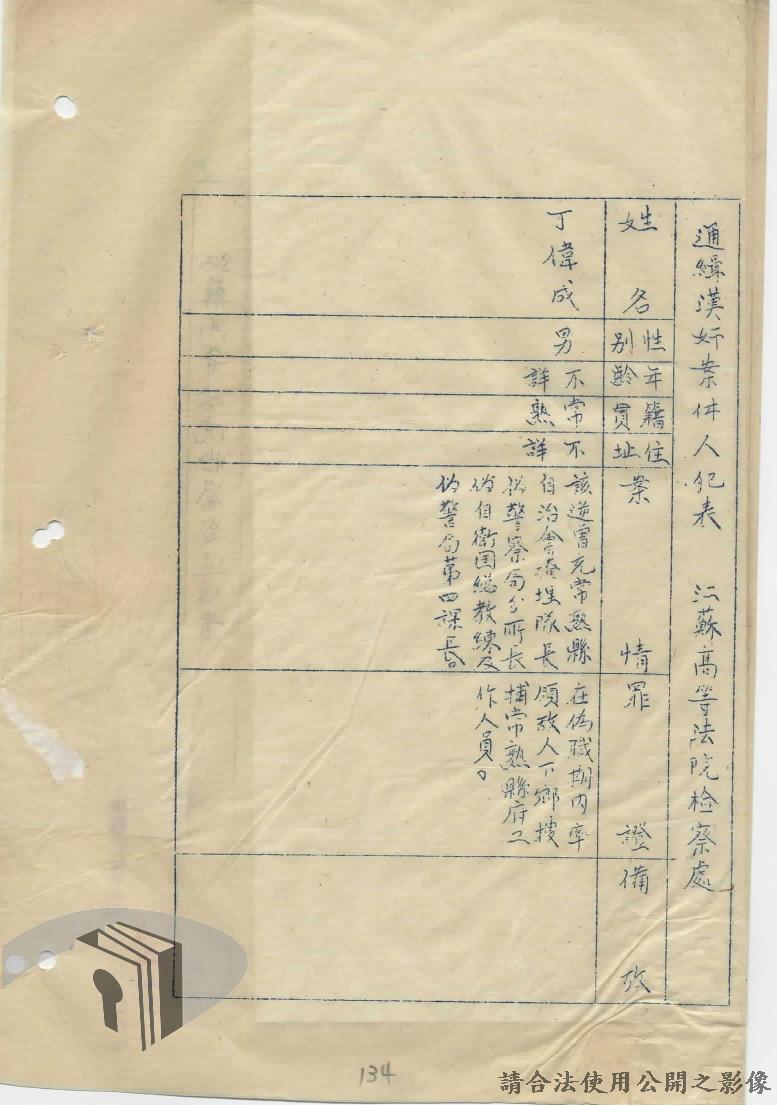 通緝漢奸案件人犯表 江蘇高等法院檢察處
姓名
性別
年齡
籍貫
住址
案情
罪證
備攷
丁偉成
男
不詳
常熟
不詳
該逆曾充常熟縣
自治會掩埋隊長
偽警察局分所長
偽自衛團總教練及
偽警局第四課長
在偽職期內率
領敵人下鄉搜
捕常熟縣府工
作人員。
134
請合法使用公開之影像